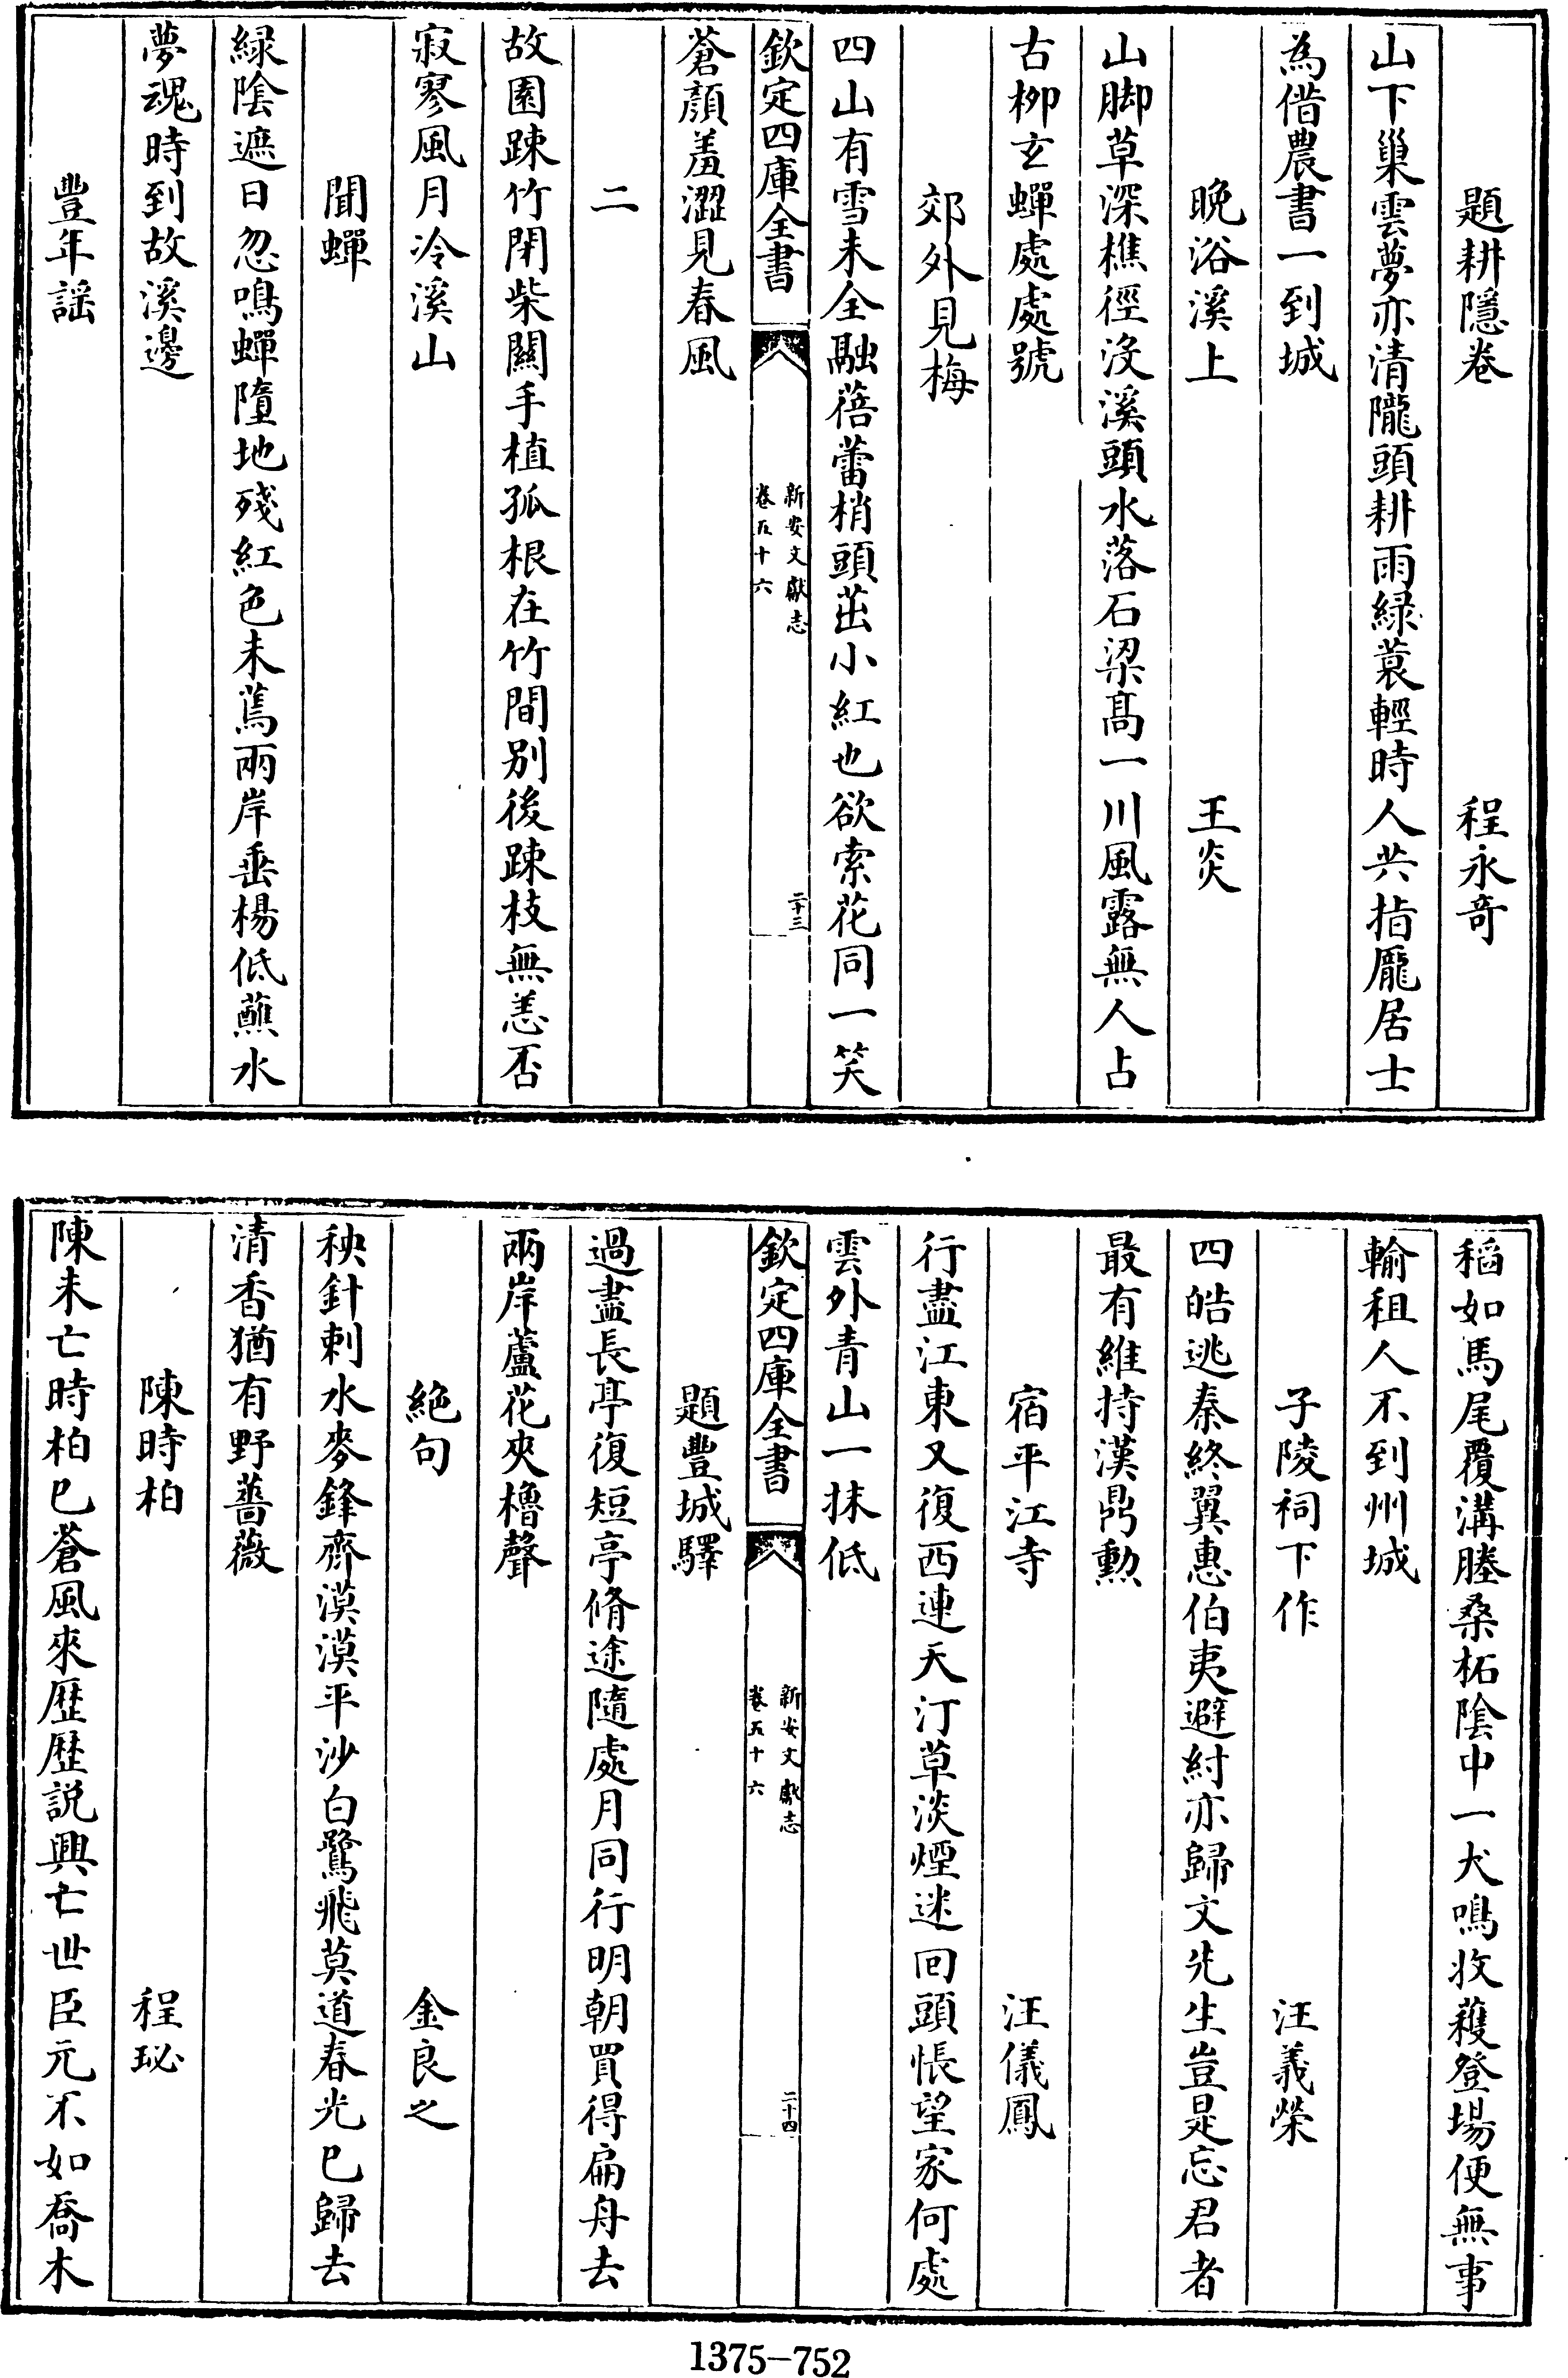 題耕隱卷　程永奇
山下巢雲夢亦清隴頭耕雨緑蓑輕時人共指龐居士
為借農書一到城
晚浴溪上　王炎
山脚草深樵徑沒溪頭水落石梁髙一川風露無人占
古柳玄蟬處處號
郊外見梅
四山有雪未全融蓓蕾梢頭茁小紅也欲索花同一笑
欽定四庫全書　新安文獻志　卷五十六　二十三
蒼顏羞澀見春風
二
故園踈竹閉柴關手植孤根在竹間别後踈枝無恙否
寂寥風月冷溪山
聞蟬
緑陰遮日忽鳴蟬墮地殘紅色未蔫兩岸垂楊低蘸水
夢魂時到故溪邊
豐年謡
稻如馬尾覆溝塍桑柘陰中一犬鳴收穫登場便無事
輸租人不到州城
子陵祠下作　汪義榮
四皓逃秦終翼惠伯夷避紂亦歸文先生豈是忘君者
最有維持漢鼎勲
宿平江寺　汪儀鳳
行盡江東又復西連天汀草淡煙迷回頭悵望家何處
雲外青山一抹低
欽定四庫全書　新安文獻志　卷五十六　二十四
題豐城驛
過盡長亭復短亭脩途隨處月同行明朝買得扁舟去
兩岸蘆花夾櫓聲
絶句　金良之
秧針刺水麥鋒齊漠漠平沙白鷺飛莫道春光已歸去
清香猶有野薔薇
陳時柏　程珌
陳未亡時柏已蒼風來歴歴説興亡世臣元不如喬木
1375-752